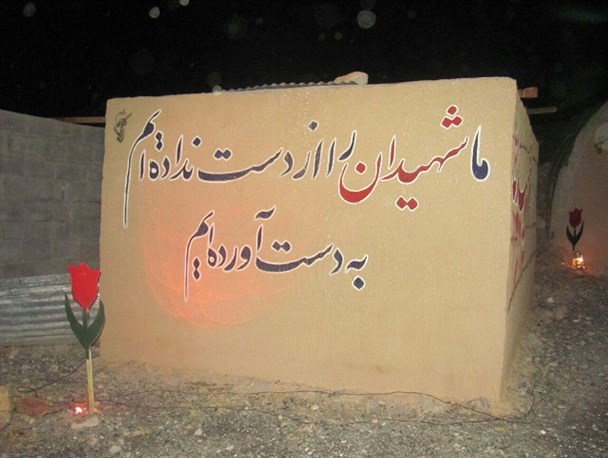 ما شهیدان را از دست نداده ایم
به دست آورده ایم